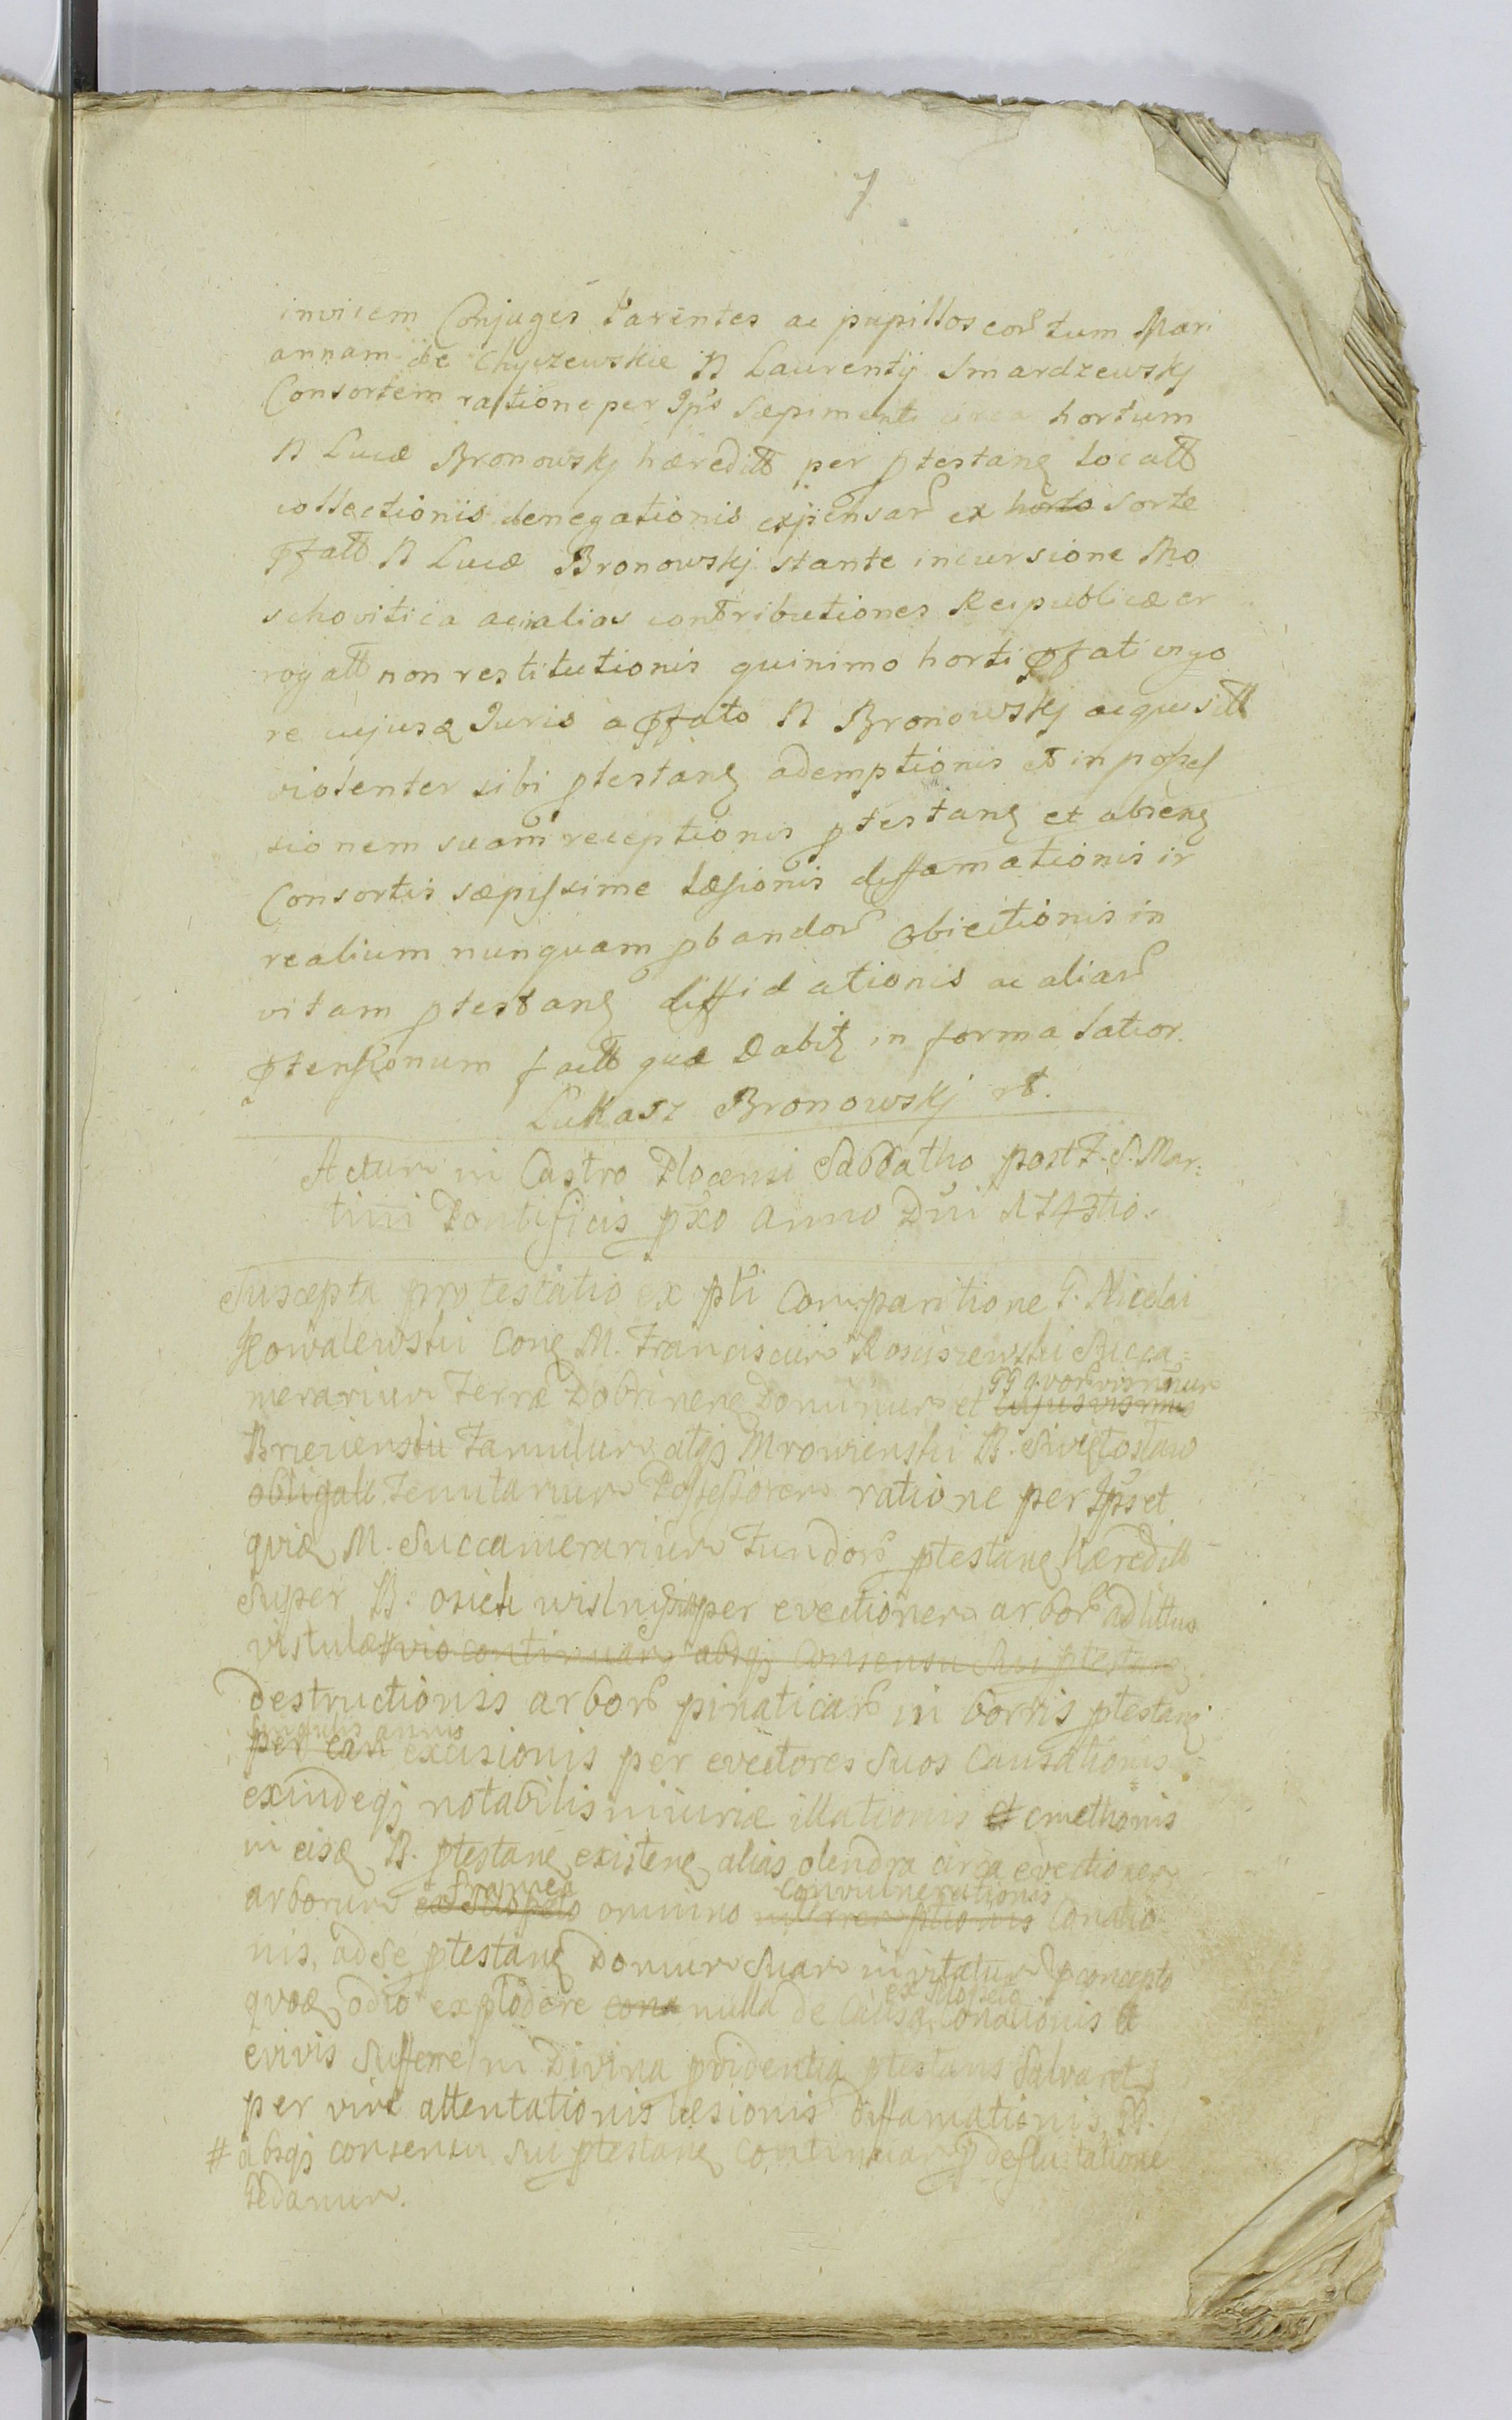 7
invicem Conjuges Parentes ac pupillos eor tum Mari
annam de Chyczewskie N Laurentij Smardzewskj
Consortem ratione per Ips Sæpimenti circa hortum
N Lucæ Bronowskj hæredit per ptestanẽ locatt
collectionis denegationis expensar ex horto sorte
pfatt N Lucæ Bronowskj stante incursione Mo
schovitica ac in alias contributiones Reipublicæ er
rogatt non restitutionis quinimo horti pfati vigo
re cujusq Juris a pfato N Bronowskj acqusitt
violenter sibi ptestanẽ ademptionis et in posses
sionem suam receptionis ptestanẽ et absenẽ
Consortis sæpissime læsionis diffamationis ir
realium nunquam pbandor obiectionis in
vitam ptestanẽ diffidationis ac aliar
ptensionum factt quæ Dabit in forma latior.
Lukasz Bronowskj rt.
Actum in Castro Plocensi Sabbatho post F. S. Mar=
tini Pontificis pxo Anno Dni 1743tio.
Suscepta protestatio ex pti Comparitione G. Nicolai
Kowalewski Conẽ M. Franciscum Rosciszewski Succa=
merarium Terræ Dobrinenẽ Dominum et cujusvis nris
GG quorumvis nrum
Famulum atq Mrowienski B. Swięctoslaw
obligatt Tenutarium Possessorem ratione per Ips et
quiđ M. Succamerarium Fundor ptestanẽ Hæreditt
super B. osiek wislny per evectionem arbor ad littus
vistulæ # continuam absq Consensu Sui ptestanẽ
destructionis arbor pinaticar in borris ptestanẽ
singulis annis
excisionis per evectores Suos Causationis
exindeq notabilis iniuriæ illationis et cmethonis
in eisđ B. ptestanẽ existenẽ alias olendra circa evectionem
framea Convulnerationis
arborum ex Sclopeto omnino Conatio
nis, ad se ptestanẽ Domum Suam invitatum pconcepto
ex sclopeto
quođ odio explodere nulla de Causa Conationis et
evivis sufferre ni Divina pvidentia ptestans Salvaret
per vive attentationis læsionis diffamationis. PP.
# absq consensu sui ptestanẽ continuam p defluitatione